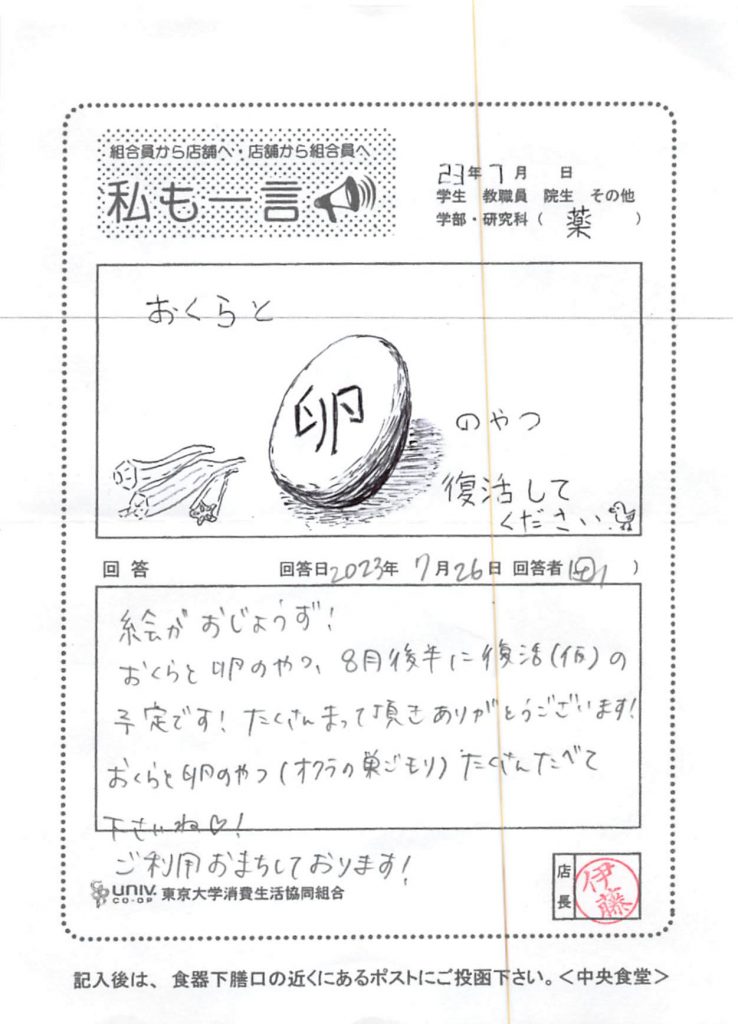 組合員から店舗へ・店舗から組合員へ
私も一言
23年7月 日
学生 教職員 院生 その他
学部・研究科( 薬 )
おくらと
卵
のやつ
復活して
ください
回答 回答日2023年 7月26日 回答者( )
絵がおじょうず!
おくらと卵のやつ、8月後半に復活(仮)の
予定です! たくさんまって頂きありがとうございます!
おくらと卵のやつ(オクラの巣ごモリ)たくさんたべて
下さいね♡!
ご利用おまちしております!
UNIV. CO-OP 東京大学消費生活協同組合
店長 伊藤
記入後は、食器下膳口の近くにあるポストにご投函下さい。<中央食堂>